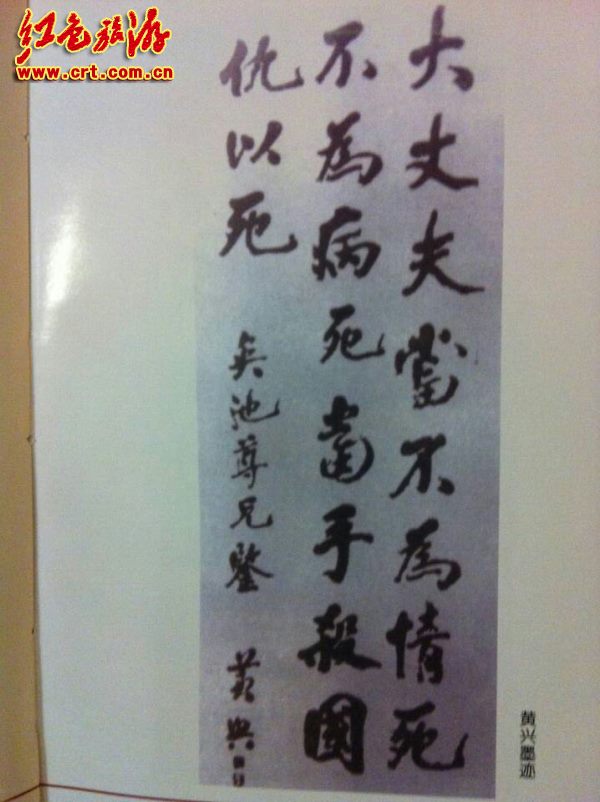 红色旅游
www.crt.com.cn
大丈夫當不為情死
不為病死當手殺國
仇以死
池尊兄鑒 黃興
黄兴墨迹